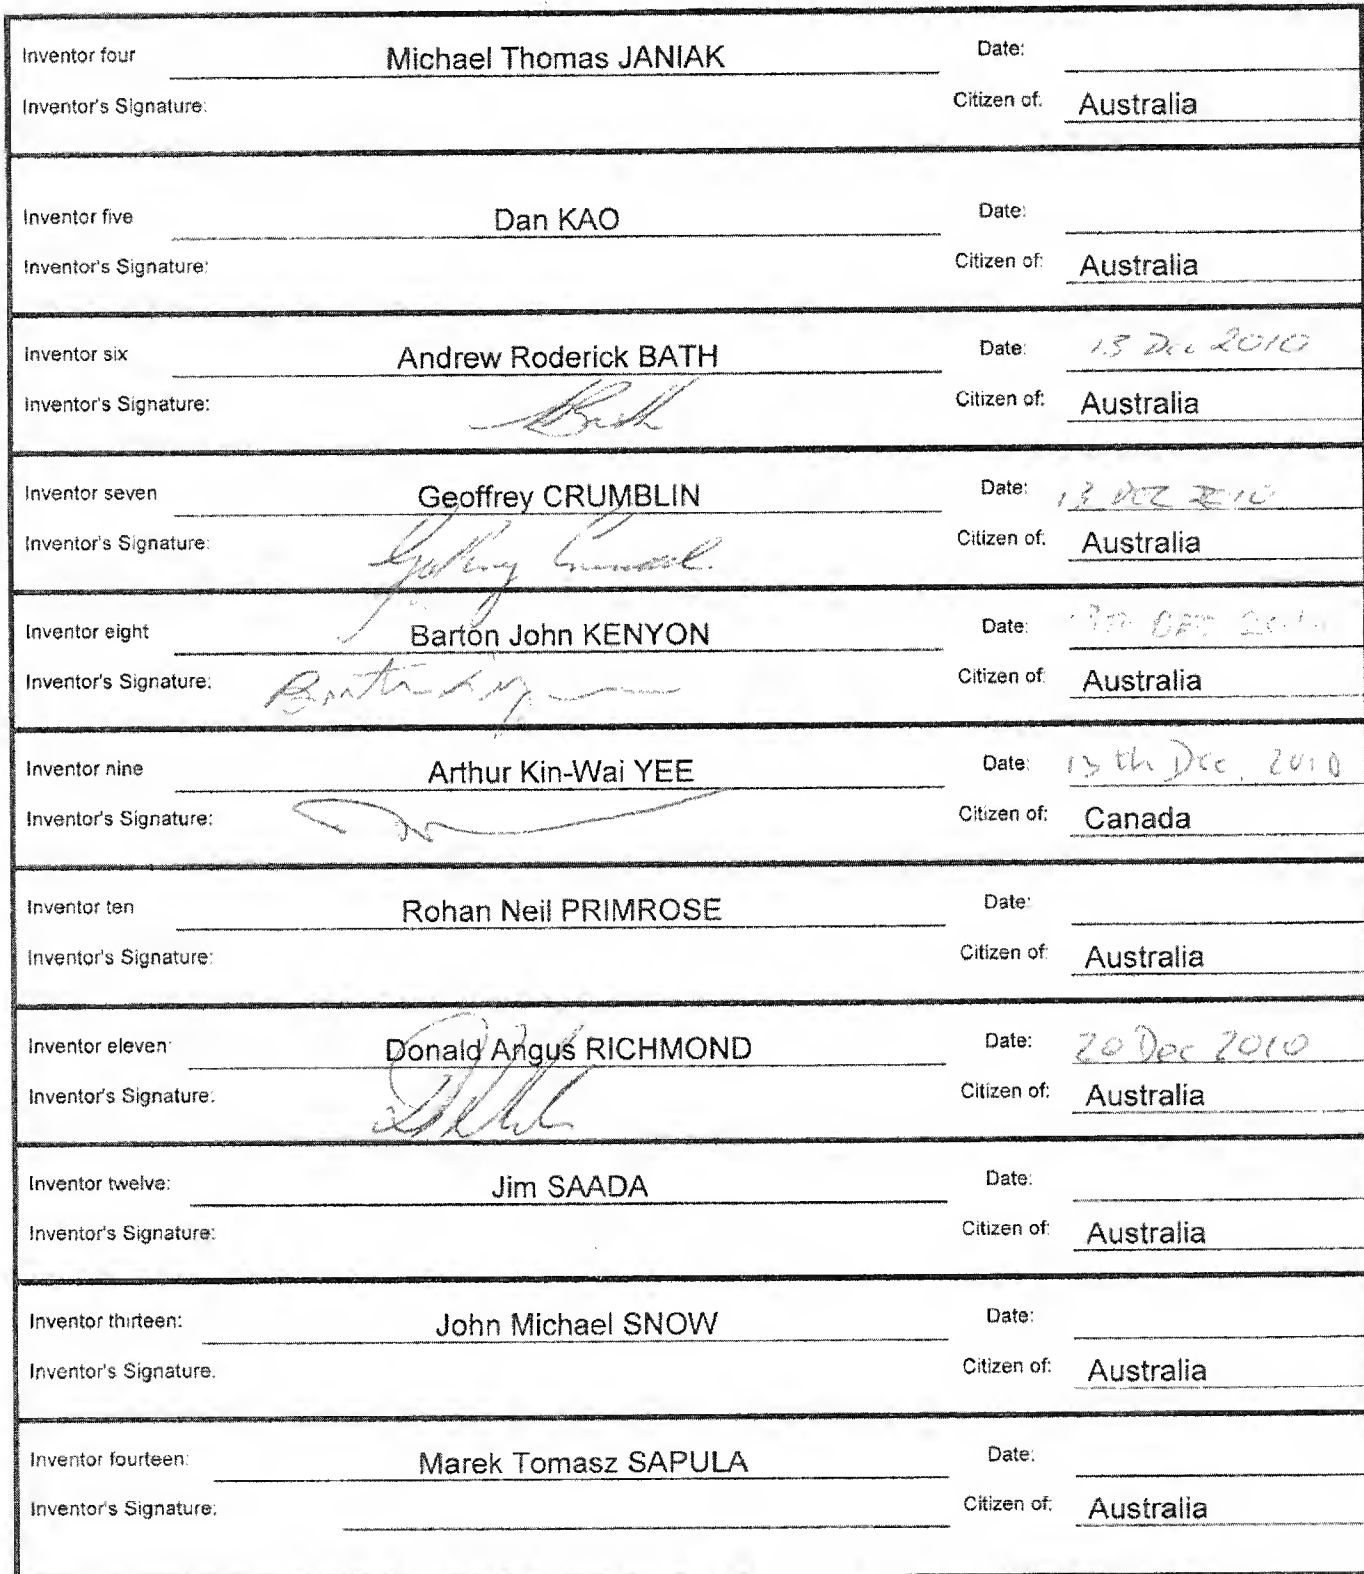 Inventor four Michael Thomas JANIAK Date:
Inventor's Signature: Citizen of: Australia
Inventor five Dan KAO Date:
Inventor's Signature: Citizen of: Australia
Inventor six Andrew Roderick BATH Date: 13 Dec 2010
Inventor's Signature: ABath Citizen of: Australia
Inventor seven Geoffrey CRUMBLIN Date: 13 DEC 2010
Inventor's Signature: Citizen of: Australia
Inventor eight Barton John KENYON Date: 13th DEC 2010
Inventor's Signature: Citizen of: Australia
Inventor nine Arthur Kin-Wai YEE Date: 13th Dec. 2010
Inventor's Signature: Citizen of: Canada
Inventor ten Rohan Neil PRIMROSE Date:
Inventor's Signature: Citizen of: Australia
Inventor eleven Donald Angus RICHMOND Date: 20 Dec 2010
Inventor's Signature: Citizen of: Australia
Inventor twelve: Jim SAADA Date:
Inventor's Signature: Citizen of: Australia
Inventor thirteen: John Michael SNOW Date:
Inventor's Signature. Citizen of: Australia
Inventor fourteen: Marek Tomasz SAPULA Date:
Inventor's Signature: Citizen of: Australia